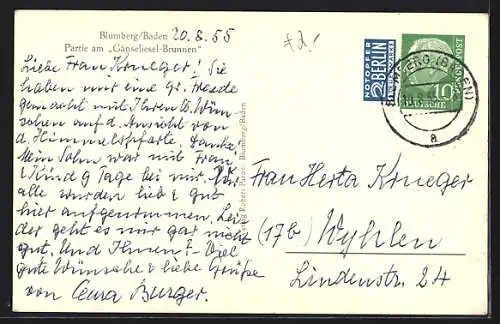 Blumberg/Baden 20.8.55
Partie am „Gänseliesel-Brunnen"
Liebe Frau Krueger! Sie
haben mir eine gr. Freude
gemacht mit Ihren lb Wün-
schen auf d. Ansicht von
d. Himmelspforte. Danke!
Mein Sohn war mit Frau
& Kind 9 Tage bei mir. Wir
alle wurden lieb & gut
hier aufgenommen. Lei-
der geht es mir gar nicht
gut. Und Ihnen? Viel
gute Wünsche & liebe Grüße
von Burger.
Verlag Robert Blumberg/Baden
NOTOPFER
2 BERLIN
STEUERMARKE
BLUMBERG (BADEN)
a
10
DEUTSCHE
BUNDESPOST
Frau Herta Krueger
(17b) Wyhlen
Lindenstr. 24